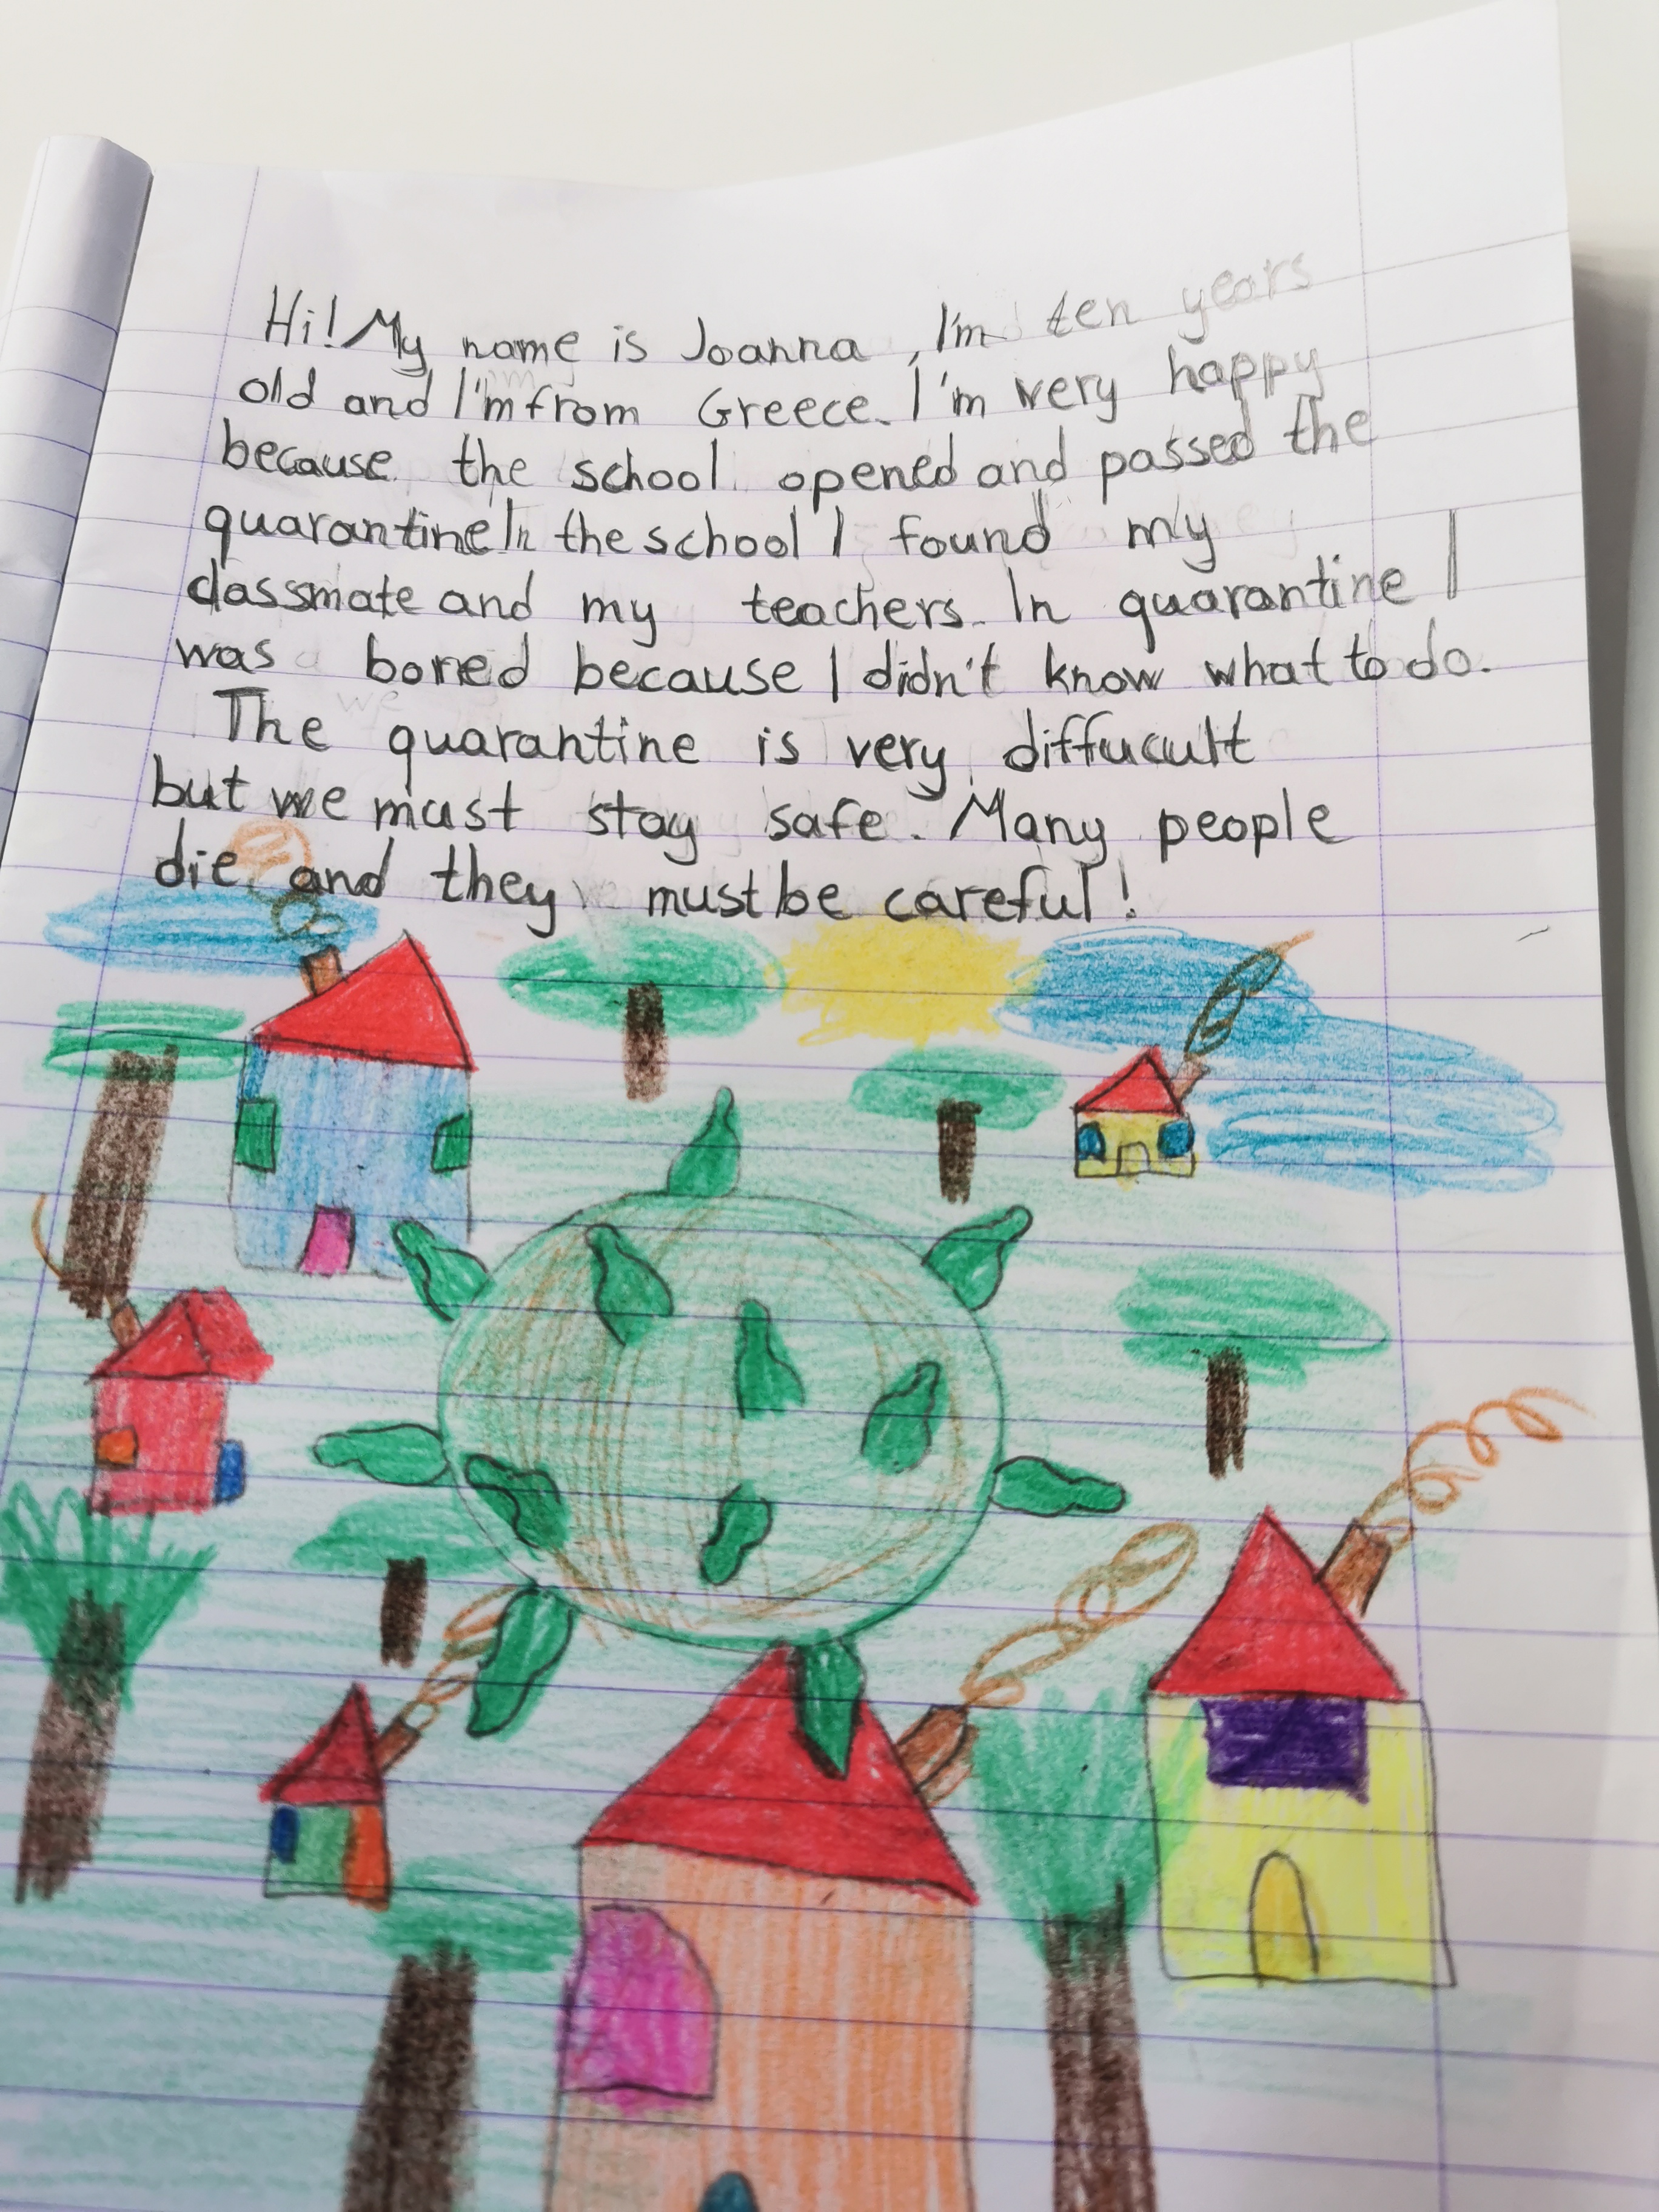 Hi! My name is Joanna, I'm ten years
old and I'm from Greece. I'm very happy
because the school opened and passed the
quarantine In the school I found my
classmate and my teachers. In quarantine I
was bored because I didn't know what to do.
The quarantine is very diffucult
but we must stay safe. Many people
die and they must be careful!